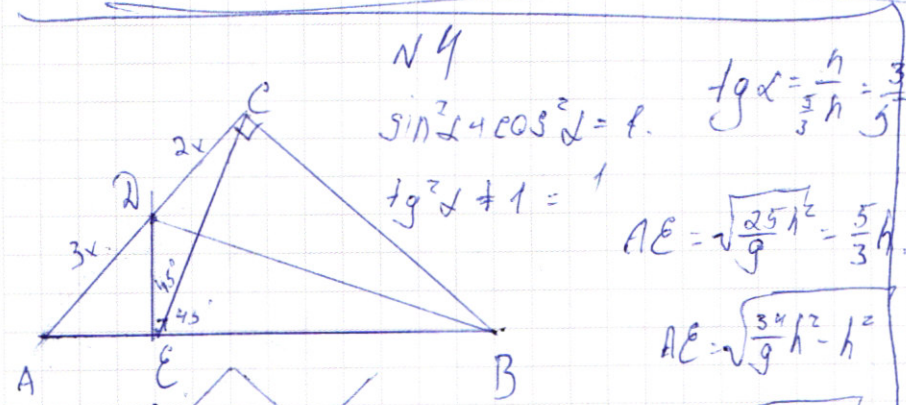 N 4
sin²α + cos²α = 1.
tg²α + 1 = 1
tg α = h / (5/3 h) = 3/5
AE = √(25h²/9) = 5/3 h.
AE = √(34/9 h² - h²)
C
2x
D
3x
45°
45°
A
E
B